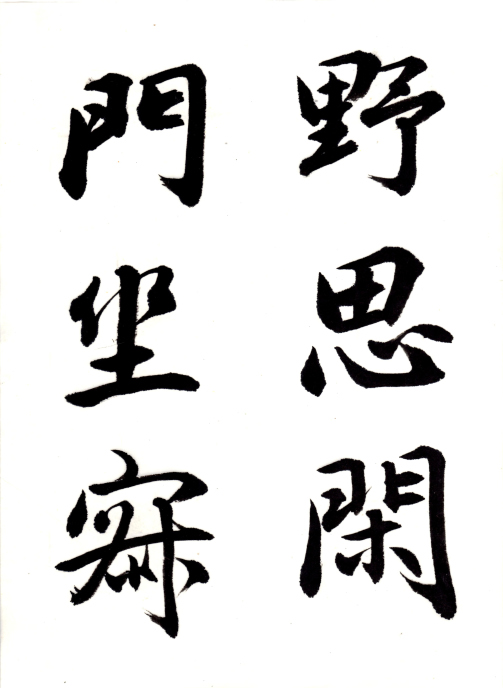 野思閑
門坐寂